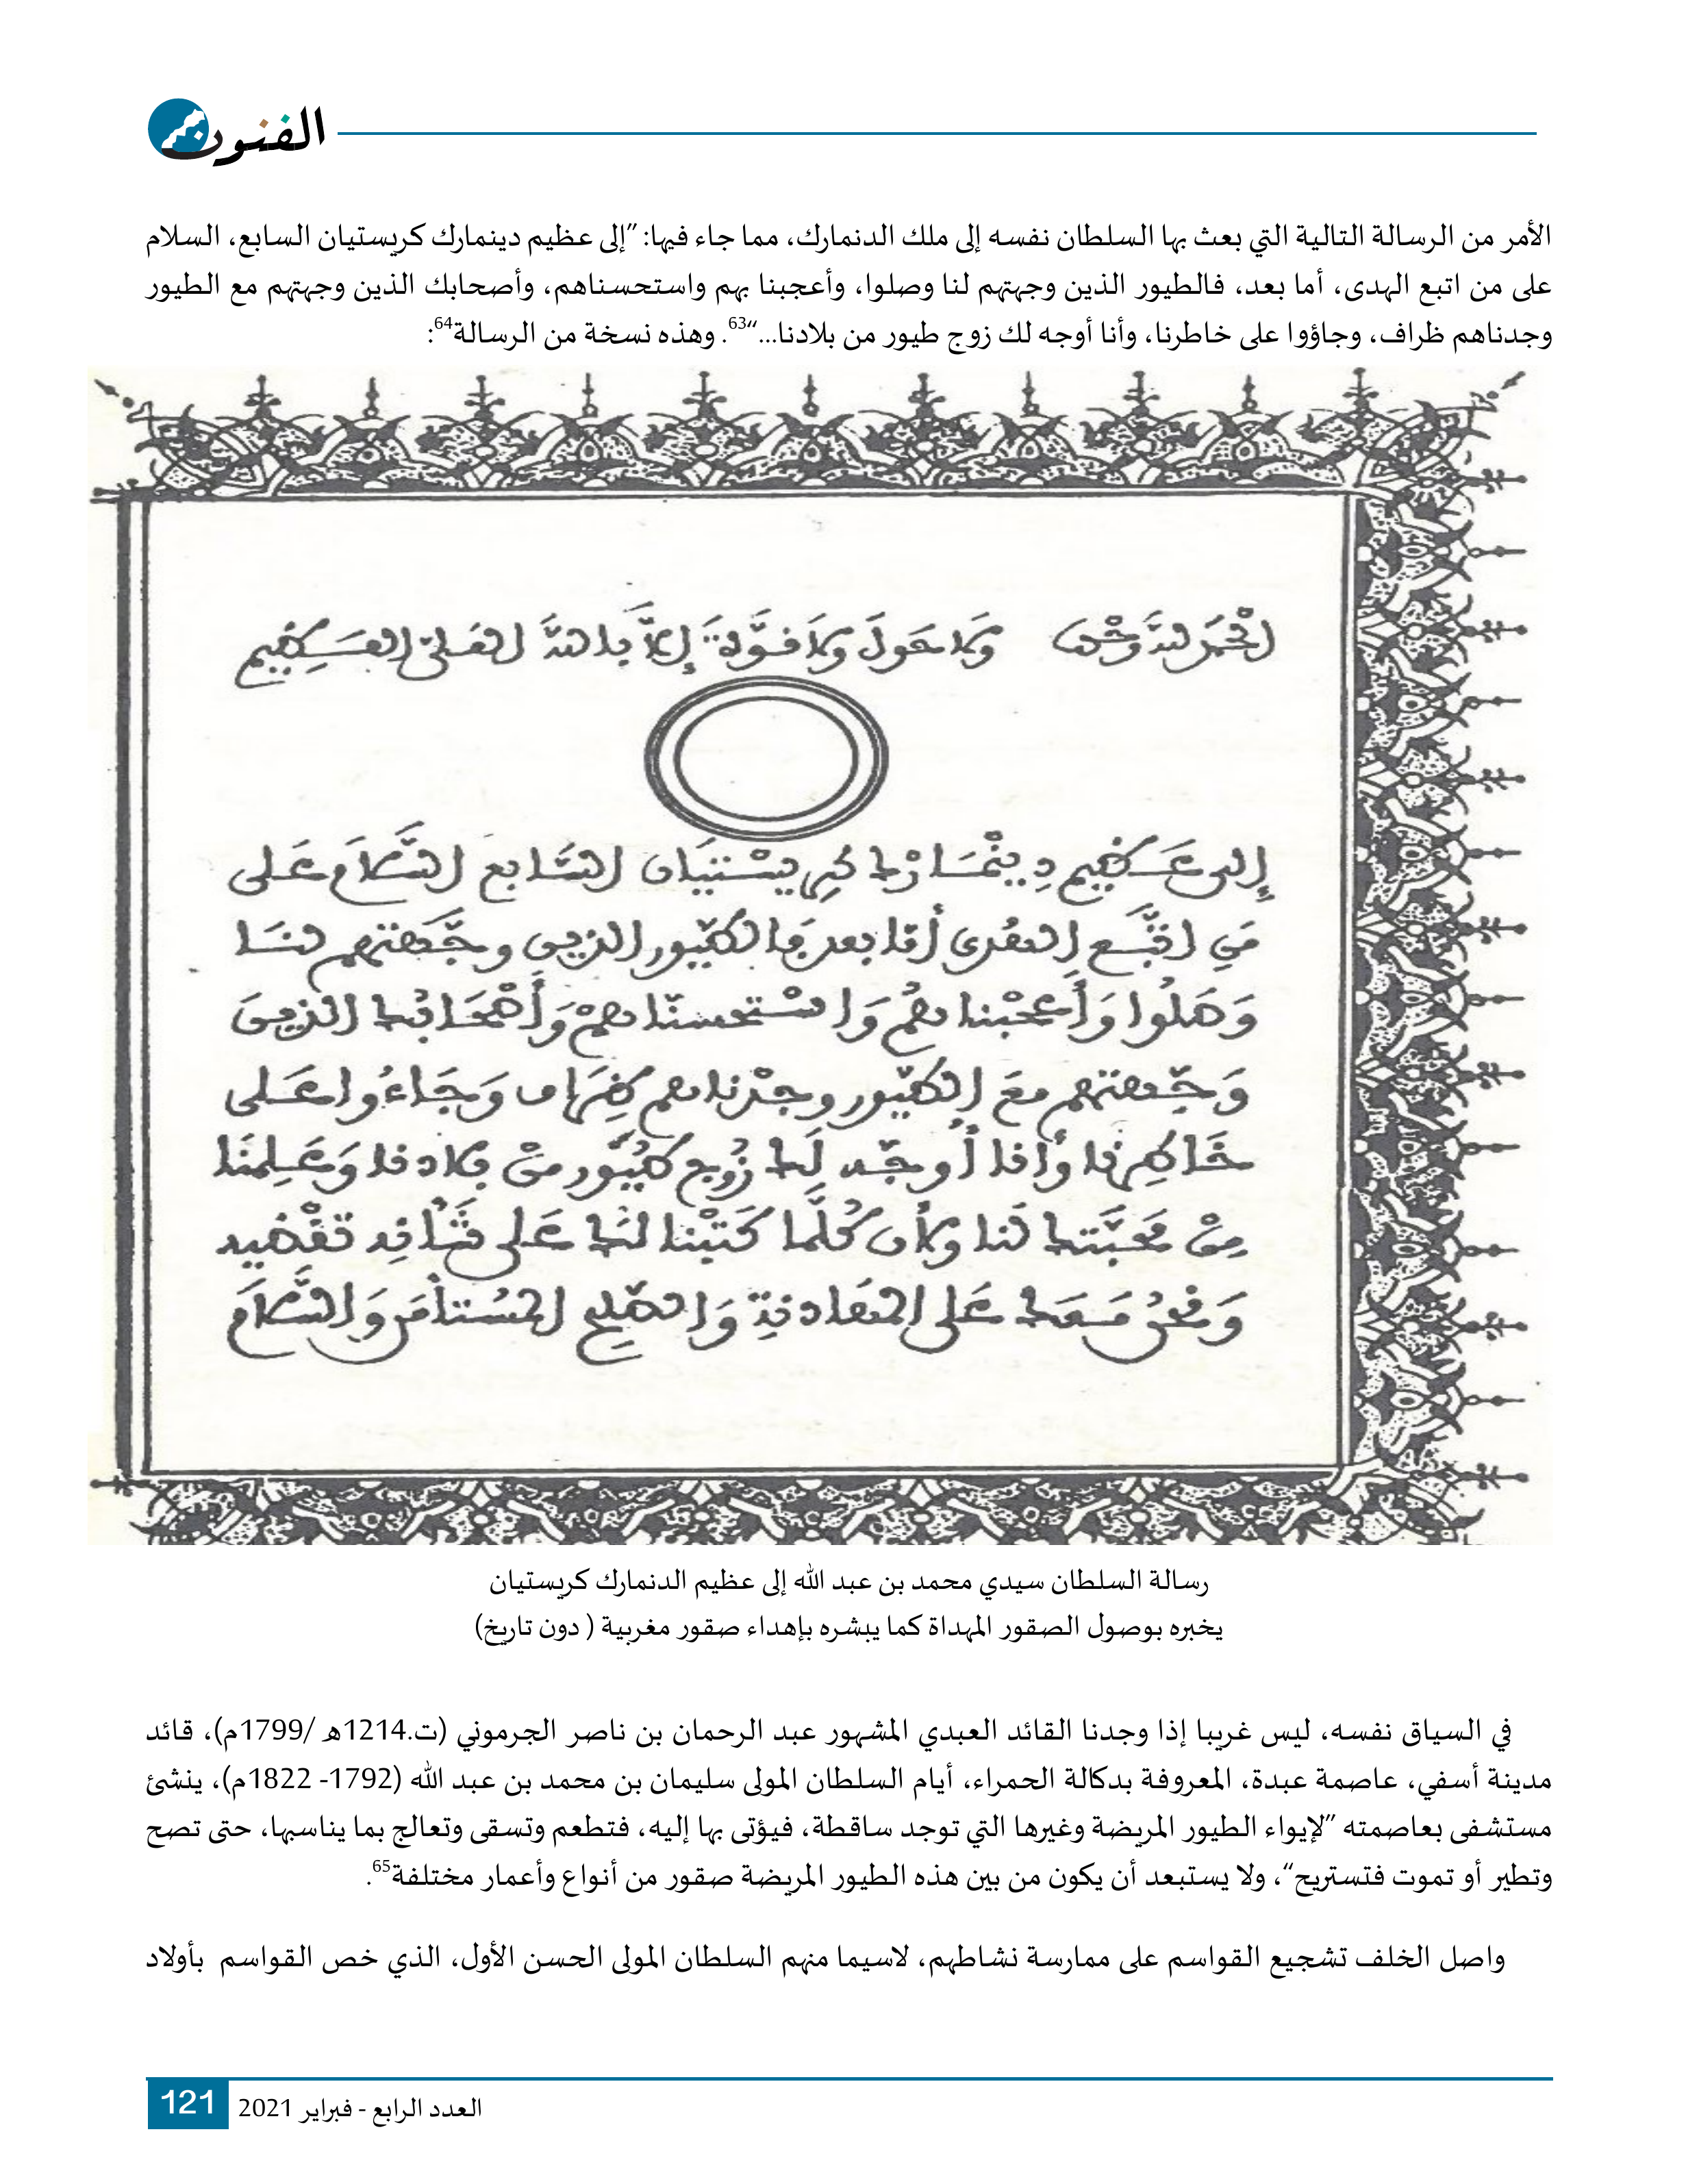 الفنون
الأمر من الرسالة التالية التي بعث بها السلطان نفسه إلى ملك الدنمارك، مما جاء فيها: ”إلى عظيم دينمارك كريستيان السابع، السلام
على من اتبع الهدى، أما بعد، فالطيور الذين وجهتهم لنا وصلوا، وأعجبنا بهم واستحسناهم، وأصحابك الذين وجهتهم مع الطيور
وجدناهم ظراف، وجاؤوا على خاطرنا، وأنا أوجه لك زوج طيور من بلادنا...“63. وهذه نسخة من الرسالة64:
الحمد لله وحده ولا حول ولا قوة إلا بالله العلي العظيم
إلى عظيم دينمارك كريستيان السابع السلام على
من اتبع الهدى أما بعد فالطيور الذين وجهتهم لنا
وصلوا وأعجبنا بهم واستحسناهم وأصحابك الذين
وجهتهم مع الطيور وجدناهم ظراف وجاءوا على
خاطرنا وأنا أوجه لك زوج طيور من بلادنا وعلمنا
من محبتك لنا ولأن كلما كتبنا لك على شأنه تقضيه
ونحن معك على المهادنة والصلح المستأمر والسلام
رسالة السلطان سيدي محمد بن عبد الله إلى عظيم الدنمارك كريستيان
يخبره بوصول الصقور المهداة كما يبشره بإهداء صقور مغربية ( دون تاريخ)
في السياق نفسه، ليس غريبا إذا وجدنا القائد العبدي المشهور عبد الرحمان بن ناصر الجرموني (ت.1214ه /1799م)، قائد
مدينة أسفي، عاصمة عبدة، المعروفة بدكالة الحمراء، أيام السلطان المولى سليمان بن محمد بن عبد الله (1792- 1822م)، ينشئ
مستشفى بعاصمته ”لإيواء الطيور المريضة وغيرها التي توجد ساقطة، فيؤتى بها إليه، فتطعم وتسقى وتعالج بما يناسبها، حتى تصح
وتطير أو تموت فتستريح“، ولا يستبعد أن يكون من بين هذه الطيور المريضة صقور من أنواع وأعمار مختلفة65.
واصل الخلف تشجيع القواسم على ممارسة نشاطهم، لاسيما منهم السلطان المولى الحسن الأول، الذي خص القواسم بأولاد
121 العدد الرابع - فبراير 2021